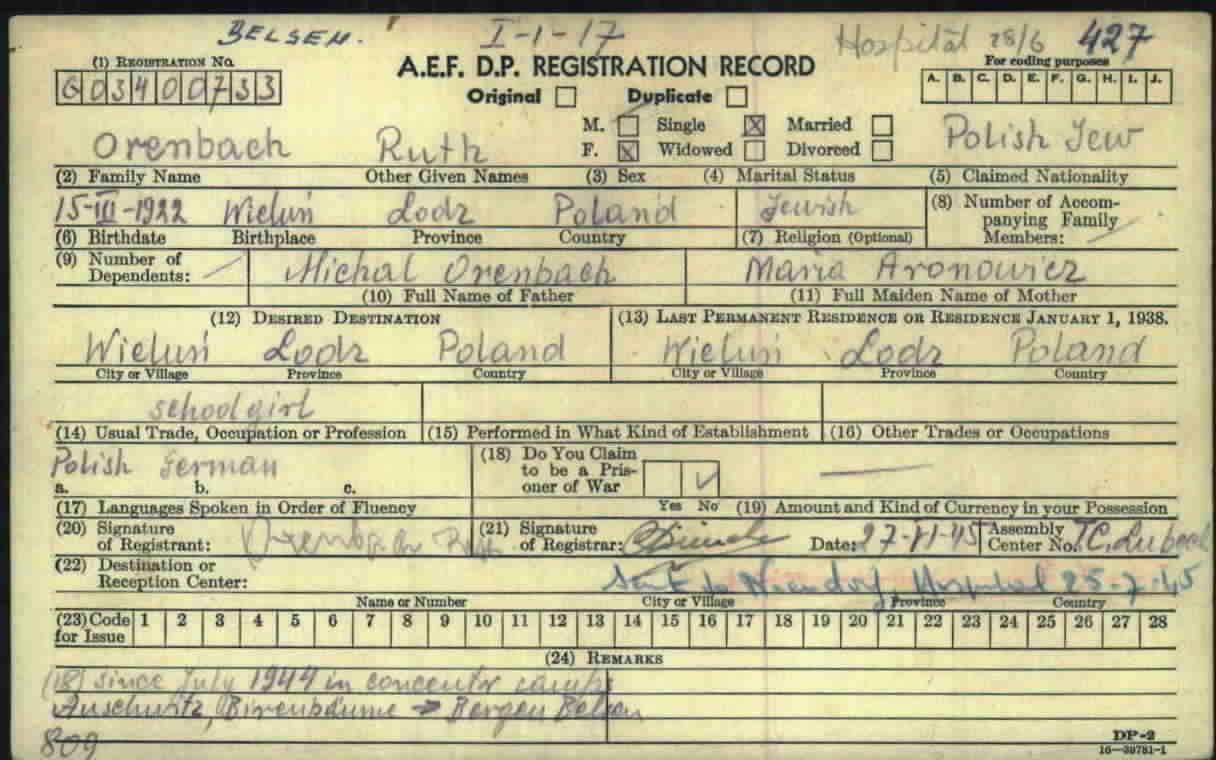 BELSEN. I-1-17 Hospital 28/6 427
(1) REGISTRATION No.
G03400733
A.E.F. D.P. REGISTRATION RECORD
Original Duplicate
For coding purposes
A. B. C. D. E. F. G. H. I. J.
Orenbach Ruth
M. Single X Married
F. X Widowed Divorced
Polish Jew
(2) Family Name Other Given Names (3) Sex (4) Marital Status (5) Claimed Nationality
15-III-1922 Wieluń Lodz Poland Jewish
(6) Birthdate Birthplace Province Country (7) Religion (Optional)
(8) Number of Accom-
panying Family
Members:
(9) Number of
Dependents:
Michal Orenbach Maria Aronowicz
(10) Full Name of Father (11) Full Maiden Name of Mother
(12) DESIRED DESTINATION (13) LAST PERMANENT RESIDENCE OR RESIDENCE JANUARY 1, 1938.
Wieluń Lodz Poland Wieluń Lodz Poland
City or Village Province Country City or Village Province Country
schoolgirl
(14) Usual Trade, Occupation or Profession (15) Performed in What Kind of Establishment (16) Other Trades or Occupations
Polish German
a. b. c.
(17) Languages Spoken in Order of Fluency
(18) Do You Claim
to be a Pris-
oner of War
Yes No
(19) Amount and Kind of Currency in your Possession
(20) Signature
of Registrant: Orenbach Ruth
(21) Signature
of Registrar:
Date: 27-VI-45
Assembly
Center No.
(22) Destination or
Reception Center:
Sent to Niendorf Hospital 25-7-45
Name or Number City or Village Province Country
(23) Code
for Issue
1 2 3 4 5 6 7 8 9 10 11 12 13 14 15 16 17 18 19 20 21 22 23 24 25 26 27 28
(24) REMARKS
(18) since July 1944 in concentr camps
Auschwitz, Birenbäume → Bergen Belsen
809
DP-2
16-39781-1